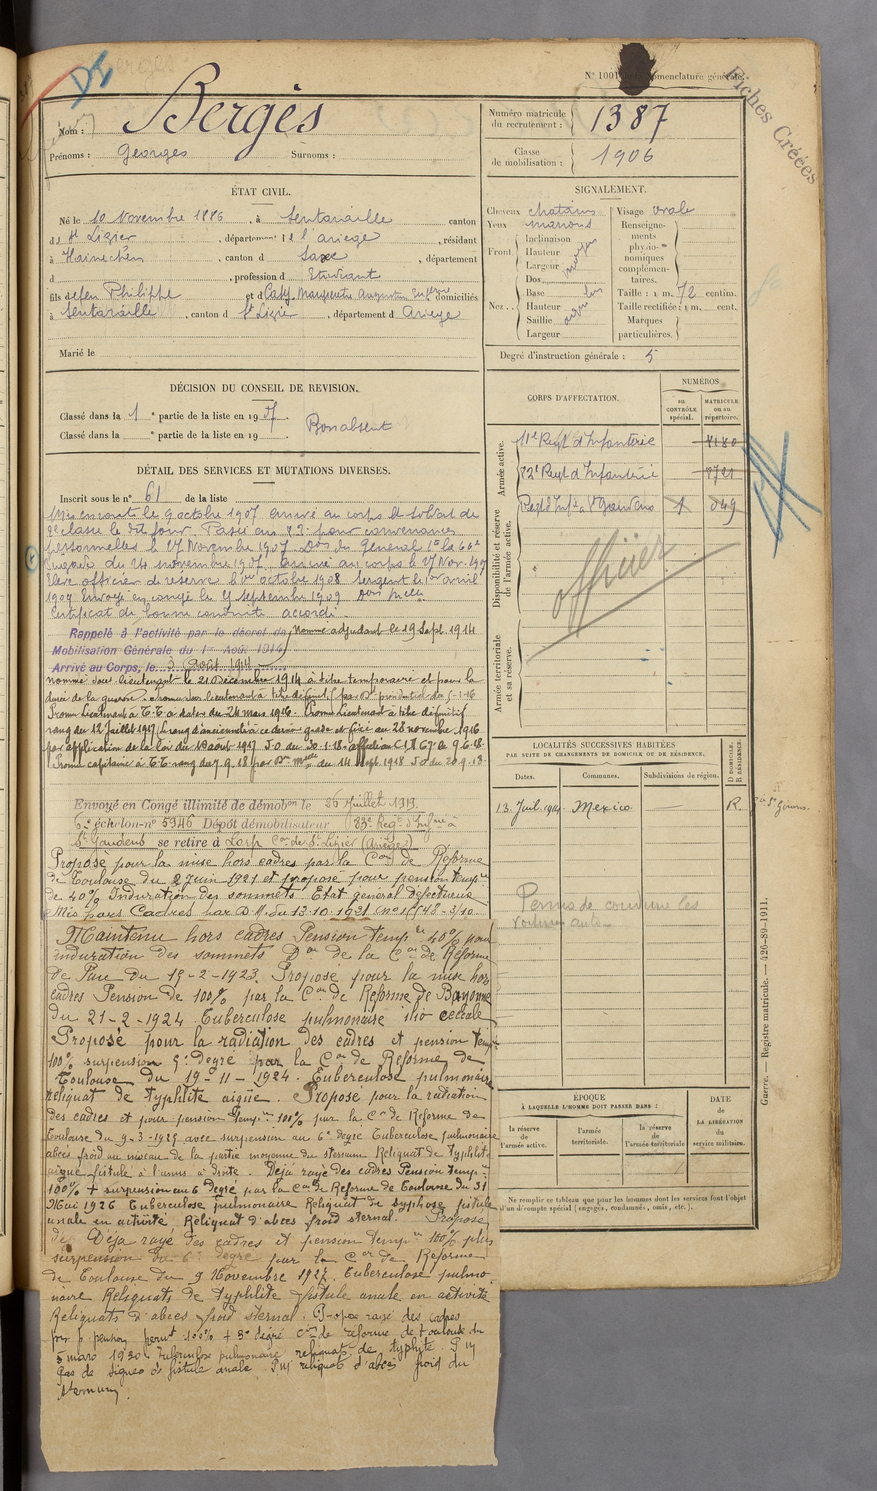 N° 1001 nomenclature générale.
Fiches Créées
Nom : Bergès
Prénoms : Georges Surnoms :
Numéro matricule du recrutement : 1387
Classe de mobilisation : 1906
ÉTAT CIVIL.
Né le 10 Novembre 1886, à Sentaraille canton
de St Lizier, département de l'Ariège, résidant
à Hainechen, canton d Saxe, département
d , profession d Etudiant
fils de feu Philippe et d Marguerite Augustine domiciliés
à Sentaraille, canton d St Lizier, département d Ariège
Marié le
SIGNALEMENT.
Cheveux chatains Visage ovale
Yeux marrons
Front Inclinaison Hauteur Largeur moyen
Nez Dos Base Hauteur Saillie Largeur
Renseignements physionomiques complémentaires.
Taille : 1 m. 72 centim.
Taille rectifiée : 1 m. cent.
Marques particulières.
Degré d'instruction générale : 5
DÉCISION DU CONSEIL DE REVISION.
Classé dans la 1e partie de la liste en 1907. Bon absent
Classé dans la e partie de la liste en 19
CORPS D'AFFECTATION.
NUMÉROS
au CONTRÔLE spécial.
MATRICULE ou au répertoire.
Armée active.
11e Regt d'Infanterie 4180
82e Regt d'Infanterie 8721
Regt d'Infie à St Gaudens 1 849
Disponibilité et réserve de l'armée active.
officier
Armée territoriale et sa réserve.
DÉTAIL DES SERVICES ET MUTATIONS DIVERSES.
Inscrit sous le n° 61 de la liste
Mis en route le 9 octobre 1907 arrivé au corps et soldat de
2e classe le dit jour. Passé au 82e pour convenances
personnelles le 27 Novembre 1907 Don du Général Ct la 66e
Brigade du 24 novembre 1907. Arrivé au corps le 27 Nov. 1907
Elève officier de réserve le 1er octobre 1908 Sergent le 1er avril
1909 Envoyé en congé le Septembre 1909
Certificat de bonne conduite accordé.
Rappelé à l'activité par le décret de Mobilisation Générale du 1er Août 1914
Arrivé au Corps, le 3 Août 1914
Nommé adjudant le 19 Sept. 1914
nommé sous lieutenant le 21 Décembre 1914 à titre temporaire et pour la
durée de la guerre. Promu sous lieutenant à titre définitif par Dt présidentiel du 5-1-16
Promu Lieutenant à T.T. à dater du 24 mars 1916. Promu Lieutenant à titre définitif
rang du 12 Juillet 1917 Le rang d'ancienneté à ce dernier grade est fixé au 28 novembre 1916
par application de la loi du 10 août 1917 J.O. du 20.1.18.
Promu capitaine à T.T. rang du 7.9.18 par Dn Melle du 14 sept 1918 J.O du 20.9.18.
Envoyé en Congé illimité de démobon le 26 Juillet 1919.
6e échelon-n° 5946 Dépôt démobilisateur 83e Regt d'Infrie à
St Gaudens se retire à Lorp Con de St Lizier (Ariège)
Proposé pour la mise hors cadres par la Con de Réforme
de Toulouse du 2 Juin 1921 et proposé pour pension tempre
de 40% Induration des sommets Etat général défectueux
Mis hors Cadres par D.M. du 13.10.1921
Maintenu hors cadres Pension tempre 40% pour
induration des sommets Don de la Con de Réforme
de Pau du 19-2-1923. Proposé pour la mise hors
cadres Pension de 100% par la Con de Réforme de Bayonne
du 21-2-1924 Tuberculose pulmonaire iléo cecale
Proposé pour la radiation des cadres et pension tempre
100% surpension 5e degré par la Con de Réforme de
Toulouse du 19-11-1924. Tuberculose pulmonaire
reliquat de typhlite aigue. Proposé pour la radiation
des cadres et pour pension tempre 100% par la Con de Réforme de
Toulouse du 9-3-1925 avec surpension au 6e degré Tuberculose pulmonaire
abcès froid au niveau de la partie moyenne du sternum Reliquat de typhlite
aigue fistule à l'anus à droite. Déjà rayé des cadres Pension tempre
100% + surpension au 6e degré par la Con de Réforme de Toulouse du 31
Mai 1926 Tuberculose pulmonaire Reliquat de typhose fistule
anale en activité, Reliquat d'abces froid sternal. Proposé
de Déjà rayé des cadres et pension tempre 100% plus
surpension du 6e degré par la Con de Réforme
de Toulouse du 9 Novembre 1927. Tuberculose pulmo-
naire Reliquats de typhlite fistule anale en activité
Reliquats d'abces froid sternal. Propose rayé des cadres
pr pension permt 100% + 3e degré Con de réforme de Toulouse du
5 mars 1930. Tuberculose pulmonaire reliquats de typhlite
Pas de signes de fistule anale. reliquats d'abcès froid du
sternum.
LOCALITÉS SUCCESSIVES HABITÉES
PAR SUITE DE CHANGEMENTS DE DOMICILE OU DE RÉSIDENCE.
Dates. Communes. Subdivisions de région. D DOMICILE. R RÉSIDENCE.
13 Juil. 1914 Mexico — R.
Permis de conduire les
voitures auto-
ÉPOQUE
À LAQUELLE L'HOMME DOIT PASSER DANS :
la réserve de l'armée active.
l'armée territoriale.
la réserve de l'armée territoriale
DATE de LA LIBÉRATION du service militaire.
Ne remplir ce tableau que pour les hommes dont les services font l'objet
d'un décompte spécial (engagés, condamnés, omis, etc.).
Guerre. — Registre matricule. — 426-89-1911.